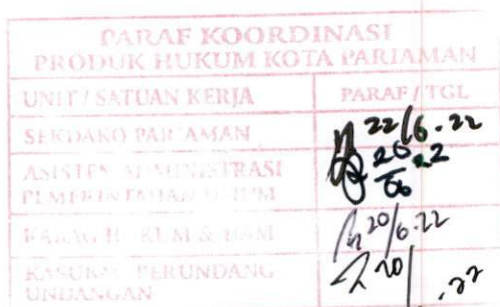 PARAF KOORDINASI
PRODUK HUKUM KOTA PARIAMAN
UNIT / SATUAN KERJA PARAF / TGL
SEKDAKO PARIAMAN 22/6.22
ASISTEN ADMINISTRASI
PEMERINTAHAN UMUM
KABAG HUKUM & HAM 20/6.22
KASUBAG PERUNDANG
UNDANGAN 20/